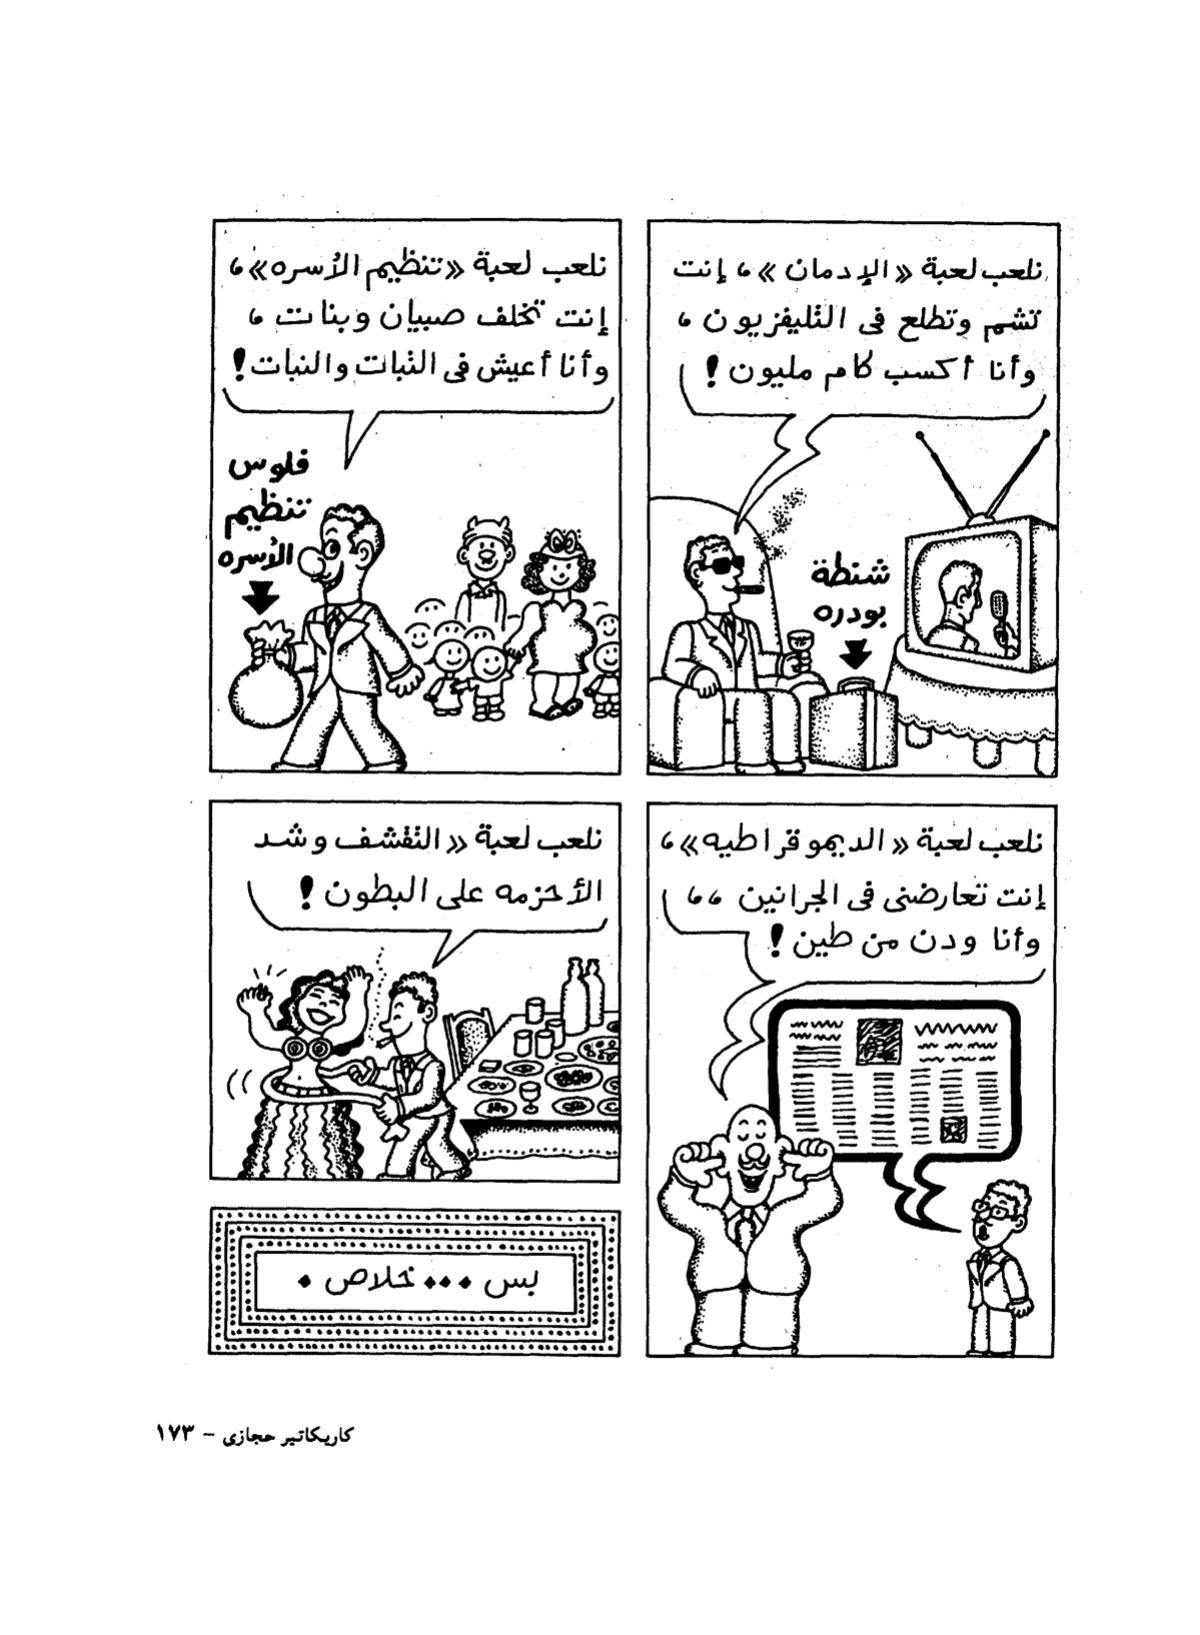 نلعب لعبة «الإدمان»، إنت
تشم وتطلع فى التليفزيون،
وأنا أكسب كام مليون!
شنطة
بودره
نلعب لعبة «تنظيم الأسره»،
إنت تخلف صبيان وبنات،
وأنا أعيش فى التبات والنبات!
فلوس
تنظيم
الأسره
نلعب لعبة «الديموقراطيه»،
إنت تعارضنى فى الجرانين،،
وأنا ودن من طين!
نلعب لعبة «التقشف وشد
الأحزمه على البطون!
بس ... خلاص.
كاريكاتير حجازى - ١٧٣